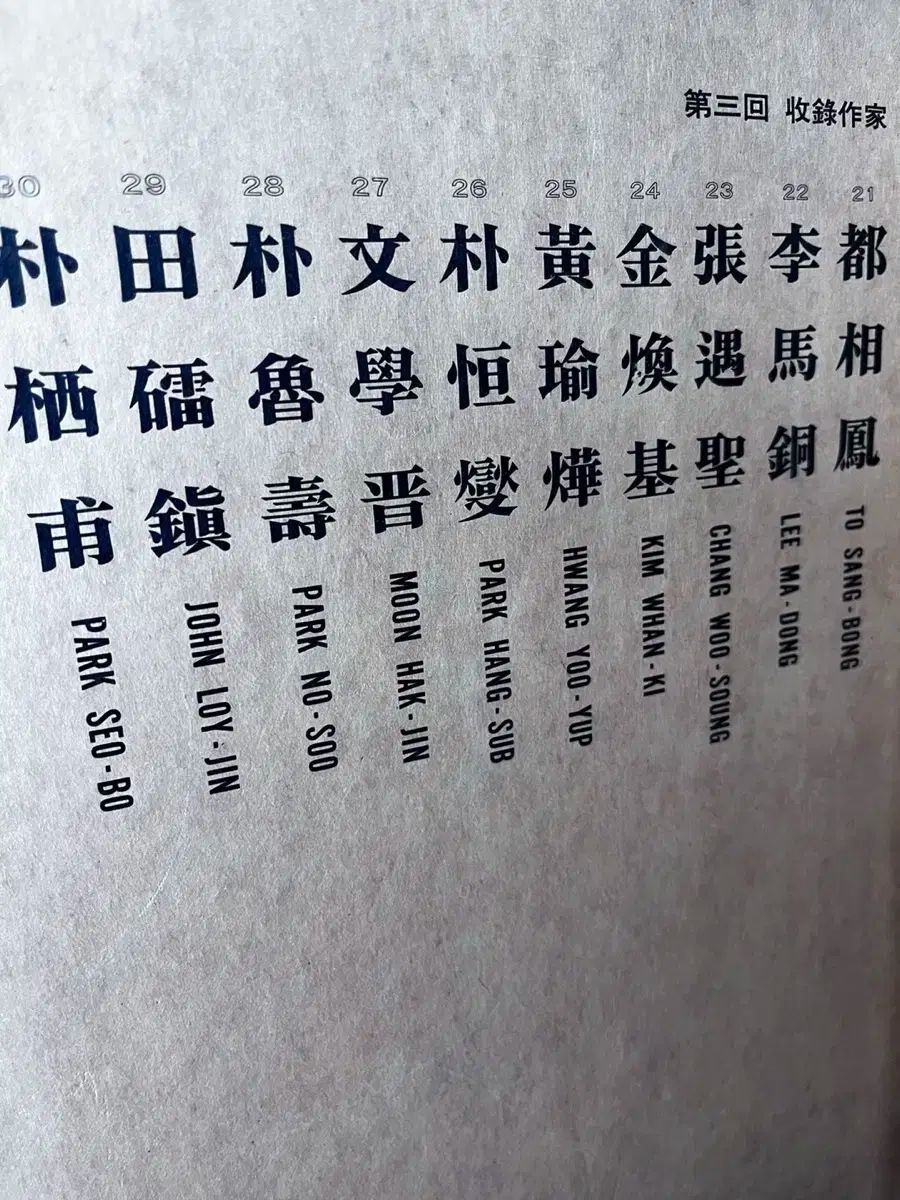 第三回 收錄作家
21
都相鳳 TO SANG-BONG
22
李馬銅 LEE MA-DONG
23
張遇聖 CHANG WOO-SOUNG
24
金煥基 KIM WHAN-KI
25
黃瑜燁 HWANG YOO-YUP
26
朴恒燮 PARK HANG-SUB
27
文學晋 MOON HAK-JIN
28
朴魯壽 PARK NO-SOO
29
田礌鎭 JOHN LOY-JIN
30
朴栖甫 PARK SEO-BO